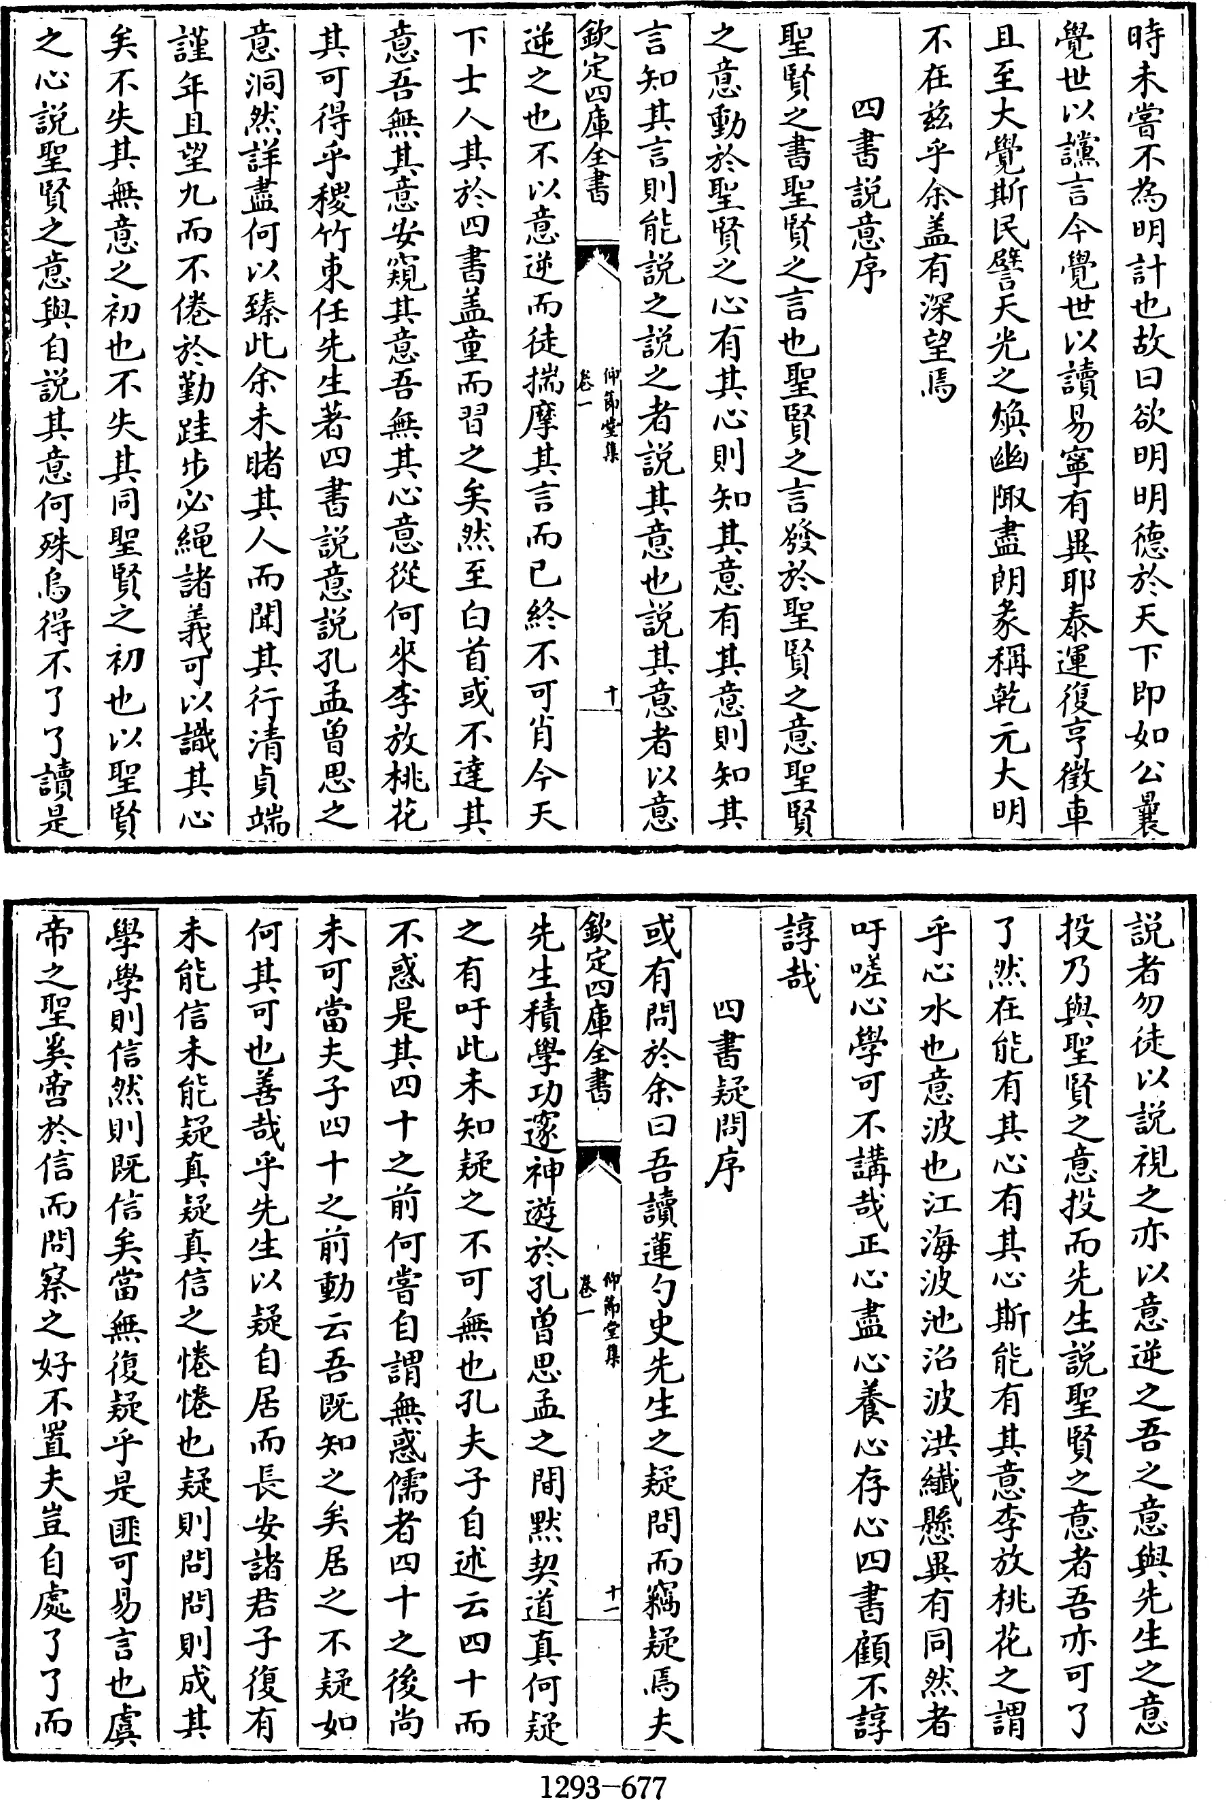 時未嘗不為明計也故曰欲明明德於天下即如公曩
覺世以讜言今覺世以讀易寧有異耶泰運復亨徵車
且至大覺斯民譬天光之煥幽陬盡朗彖稱乾元大明
不在兹乎余盖有深望焉
四書説意序
聖賢之書聖賢之言也聖賢之言發於聖賢之意聖賢
之意動於聖賢之心有其心則知其意有其意則知其
言知其言則能説之説之者説其意也説其意者以意
欽定四庫全書
仰節堂集
卷一
十
逆之也不以意逆而徒揣摩其言而已終不可肖今天
下士人其於四書盖童而習之矣然至白首或不達其
意吾無其意安窺其意吾無其心意從何來李放桃花
其可得乎稷竹東任先生著四書説意説孔孟曾思之
意洞然詳盡何以臻此余未睹其人而聞其行清貞端
謹年且望九而不倦於勤跬步必繩諸義可以識其心
矣不失其無意之初也不失其同聖賢之初也以聖賢
之心説聖賢之意與自説其意何殊烏得不了了讀是
説者勿徒以説視之亦以意逆之吾之意與先生之意
投乃與聖賢之意投而先生説聖賢之意者吾亦可了
了然在能有其心有其心斯能有其意李放桃花之謂
乎心水也意波也江海波池沼波洪纖懸異有同然者
吁嗟心學可不講哉正心盡心養心存心四書顧不諄
諄哉
四書疑問序
或有問於余曰吾讀蓮勺史先生之疑問而竊疑焉夫
欽定四庫全書
仰節堂集
卷一
十一
先生積學功邃神遊於孔曾思孟之間默契道真何疑
之有吁此未知疑之不可無也孔夫子自述云四十而
不惑是其四十之前何嘗自謂無惑儒者四十之後尚
未可當夫子四十之前動云吾既知之矣居之不疑如
何其可也善哉乎先生以疑自居而長安諸君子復有
未能信未能疑真疑真信之惓惓也疑則問問則成其
學學則信然則既信矣當無復疑乎是匪可易言也虞
帝之聖奚啻於信而問察之好不置夫豈自處了了而
1293-677